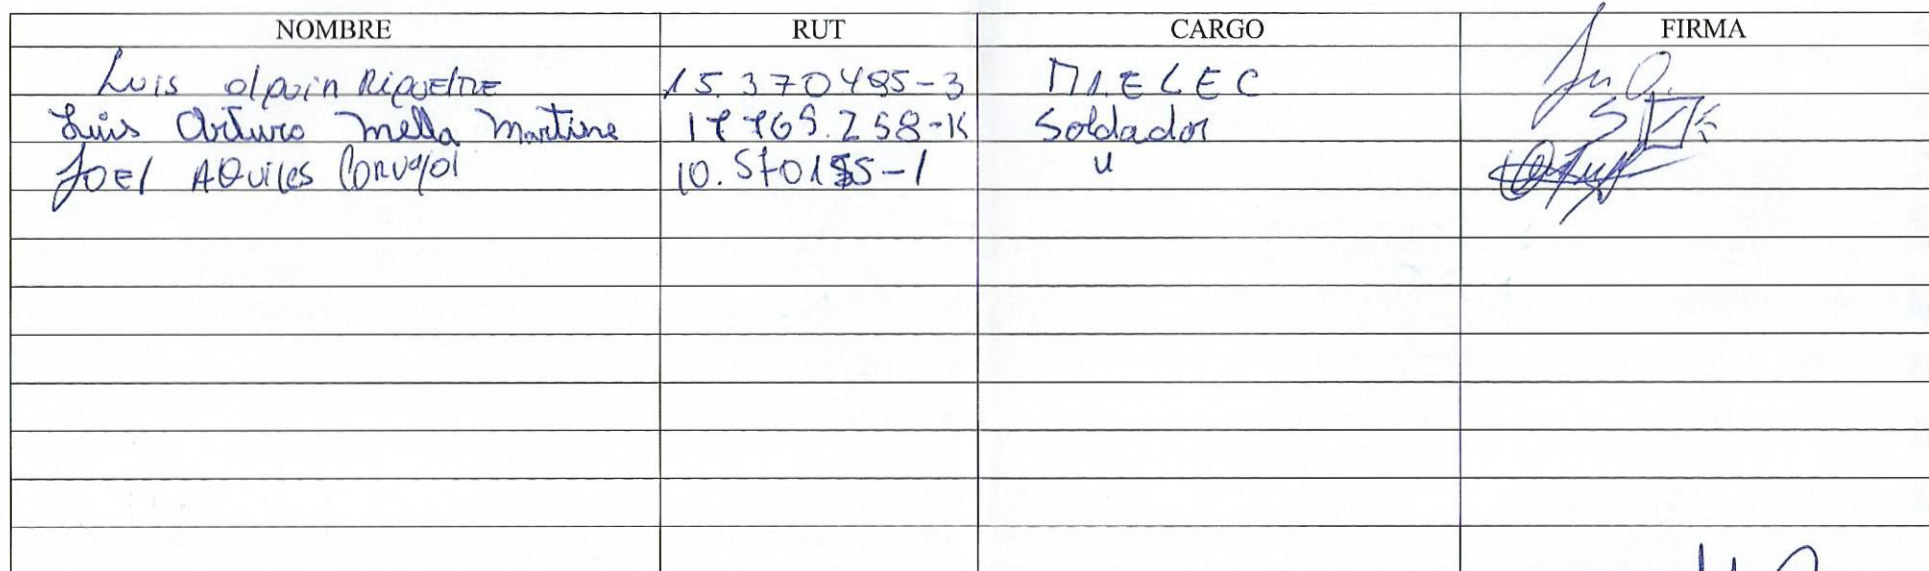 NOMBRE RUT CARGO FIRMA
Luis olguin Riquelme 15.370485-3 M.ELEC
Luis Arturo Mella Martine 17769.258-K Soldador
JOEl AQuiles 10. "